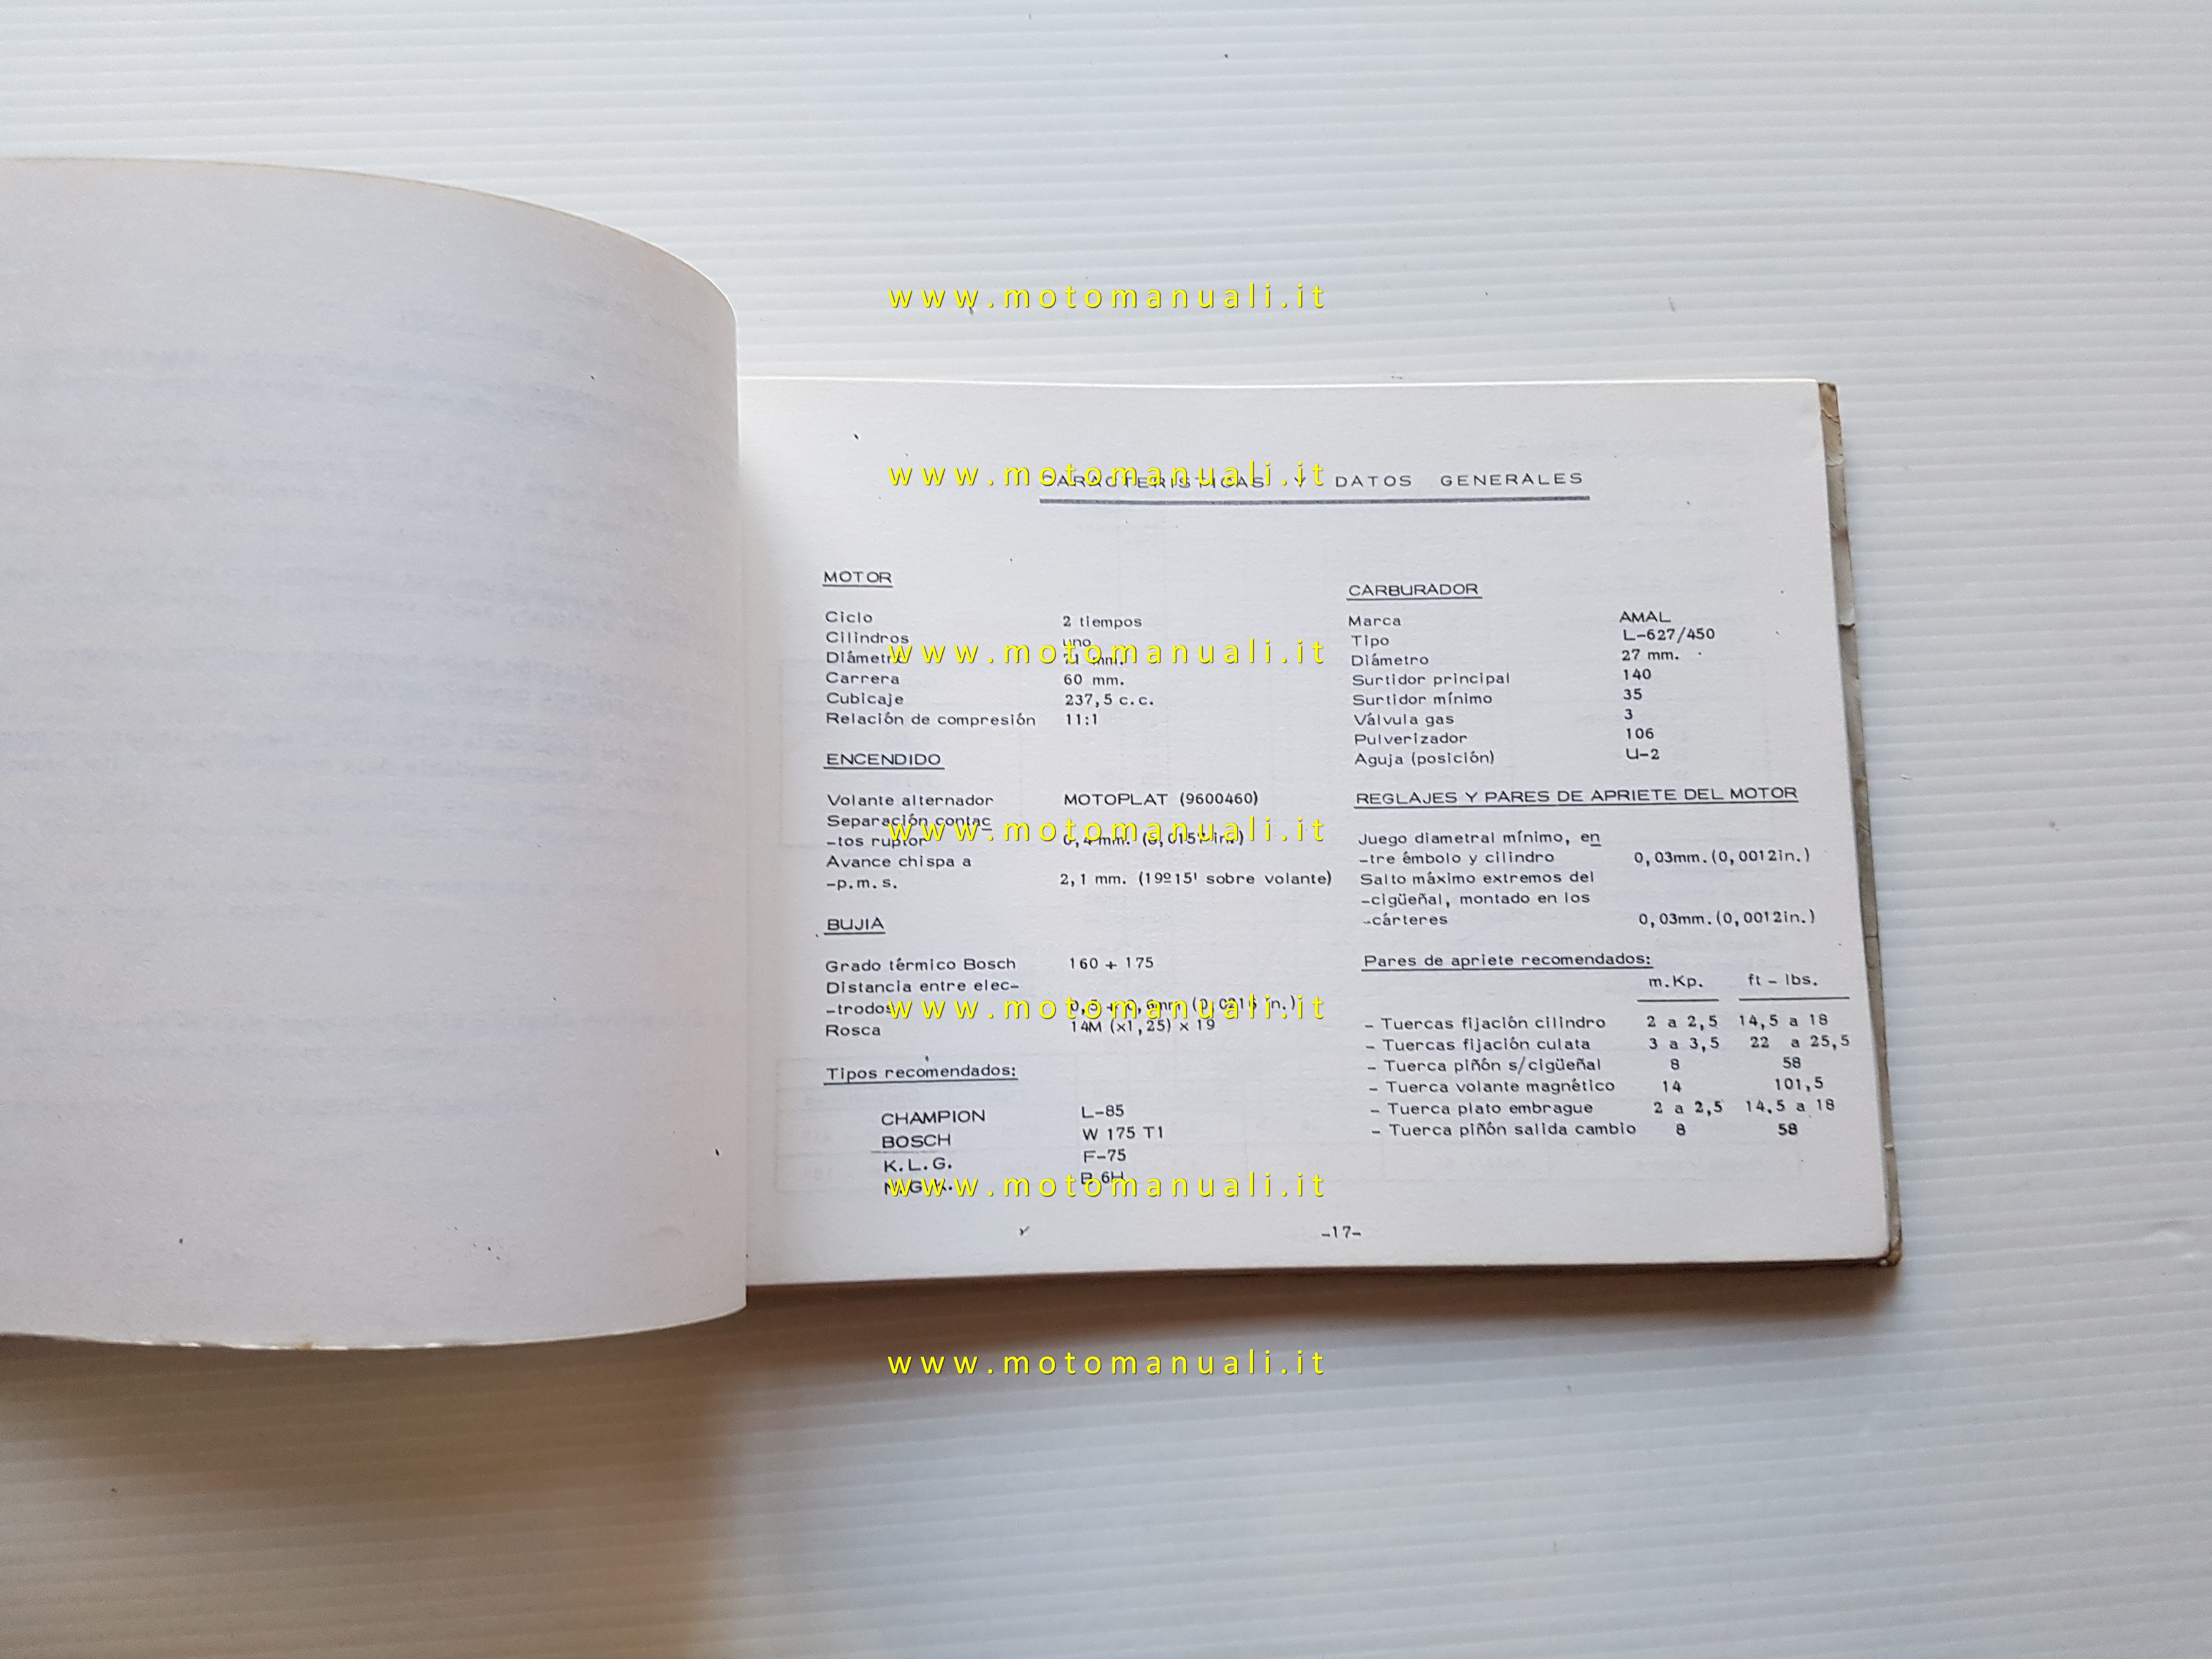 www.motomanuali.it
www.motomanuali.it
CARACTERISTICAS Y DATOS GENERALES
MOTOR
Ciclo 2 tiempos
Cilindros uno
www.motomanuali.it
Diámetro 71 mm.
Carrera 60 mm.
Cubicaje 237,5 c.c.
Relación de compresión 11:1
ENCENDIDO
Volante alternador MOTOPLAT (9600460)
Separación contac
www.motomanuali.it
-tos ruptor 0,4 mm. (0,0157 in.)
Avance chispa a
-p.m.s. 2,1 mm. (19º15' sobre volante)
BUJIA
Grado térmico Bosch 160 + 175
Distancia entre elec-
-trodos 0,5 + 0,6mm (0,0216 in.)
www.motomanuali.it
Rosca 14M (x1,25) x 19
Tipos recomendados:
CHAMPION L-85
BOSCH W 175 T1
K.L.G. F-75
N.G.K. 6H
www.motomanuali.it
CARBURADOR
Marca AMAL
Tipo L-627/450
Diámetro 27 mm.
Surtidor principal 140
Surtidor mínimo 35
Válvula gas 3
Pulverizador 106
Aguja (posición) U-2
REGLAJES Y PARES DE APRIETE DEL MOTOR
Juego diametral mínimo, en
-tre émbolo y cilindro 0,03mm.(0,0012in.)
Salto máximo extremos del
-cigüeñal, montado en los
-cárteres 0,03mm.(0,0012in.)
Pares de apriete recomendados:
m.Kp. ft - lbs.
- Tuercas fijación cilindro 2 a 2,5 14,5 a 18
- Tuercas fijación culata 3 a 3,5 22 a 25,5
- Tuerca piñón s/cigüeñal 8 58
- Tuerca volante magnético 14 101,5
- Tuerca plato embrague 2 a 2,5 14.5 a 18
- Tuerca piñón salida cambio 8 58
-17-
www.motomanuali.it